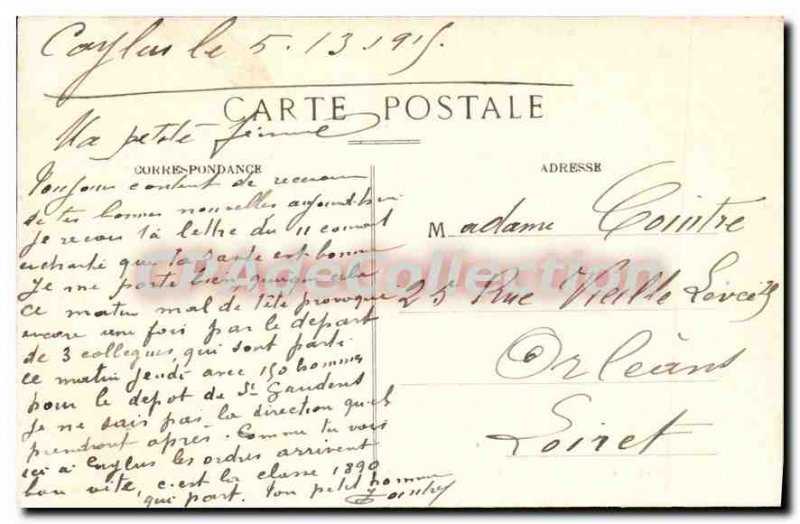 Caylus le 5.13.1915.
CARTE POSTALE
Ma petite femme
CORRESPONDANCE
ADRESSE
Toujours content de recevoir
de tes bonnes nouvelles aujourd'hui
je recois ta lettre du 11 courant
enchanté que ta santé est bonne
Je me porte bien quoique cela
ce matin mal de tête provoque
encore une fois par le depart
de 3 collegues, qui sont parti
ce matin jeudi avec 150 hommes
pour le depot de St Gaudens
je ne sais pas la direction qu'il
prendront après. Comme tu vois
ici à Caylus les ordres arrivent
bon vite, c'est la classe 1890
qui part. ton petit homme
Cointre
Madame Cointre
25 Rue Vieille Levée
Orléans
Loiret
CPADeCollection